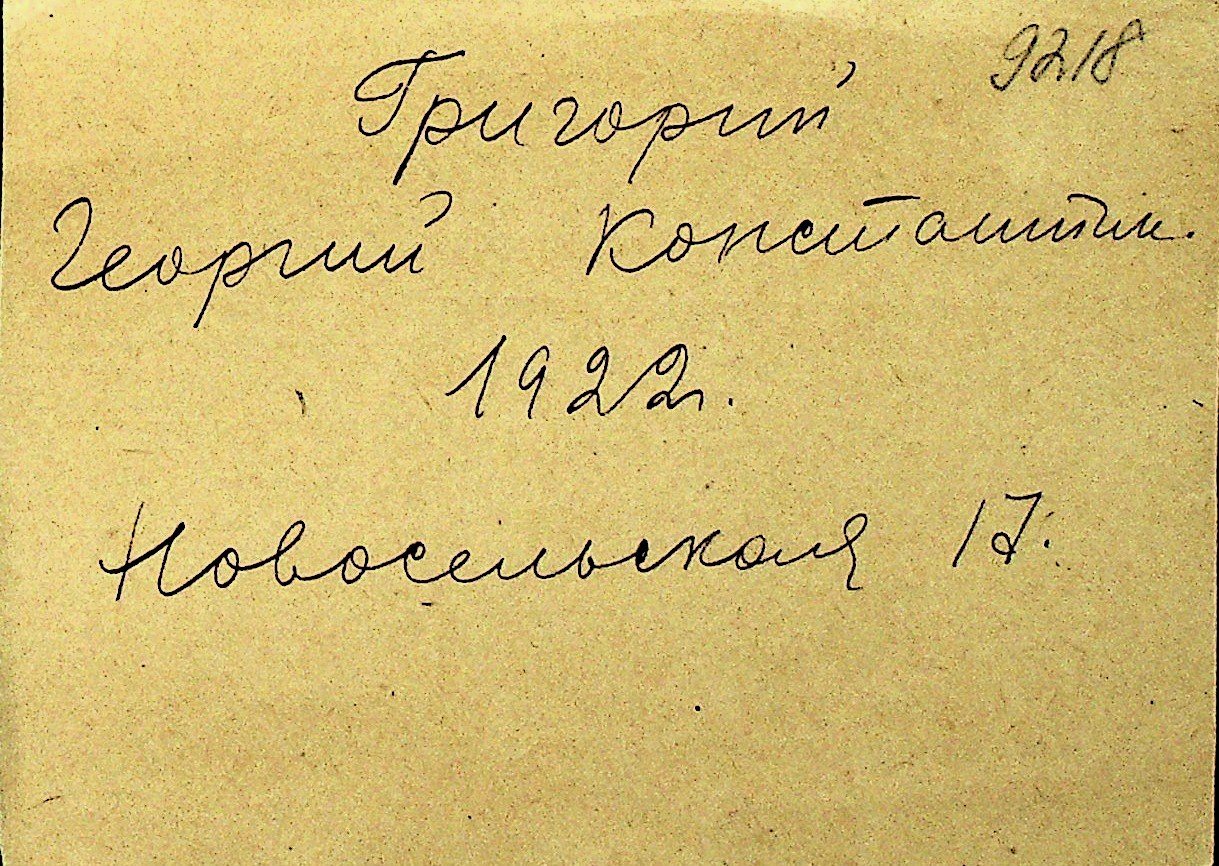 9218
Григорий
Георгий Константин.
1922.
Новосельская 17.